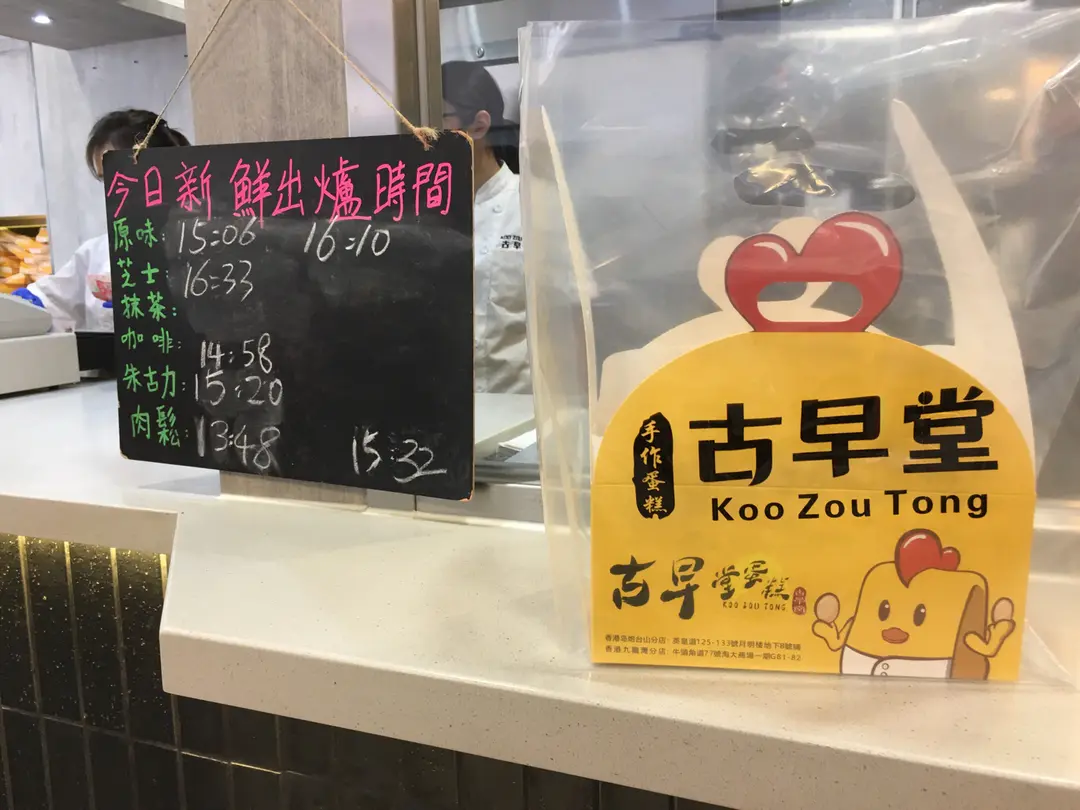 今日新鮮出爐時間
原味: 15:06 16:10
芝士: 16:33
抹茶:
咖啡: 14:58
朱古力: 15:20
肉鬆: 13:48 15:32
手作蛋糕
古早堂
Koo Zou Tong
古早堂蛋糕
KOO ZOU TONG
香港炮台山分店: 英皇道125-133號月明樓地下B號舖
香港九龍灣分店: 牛頭角道77號淘大商場一期G81-82